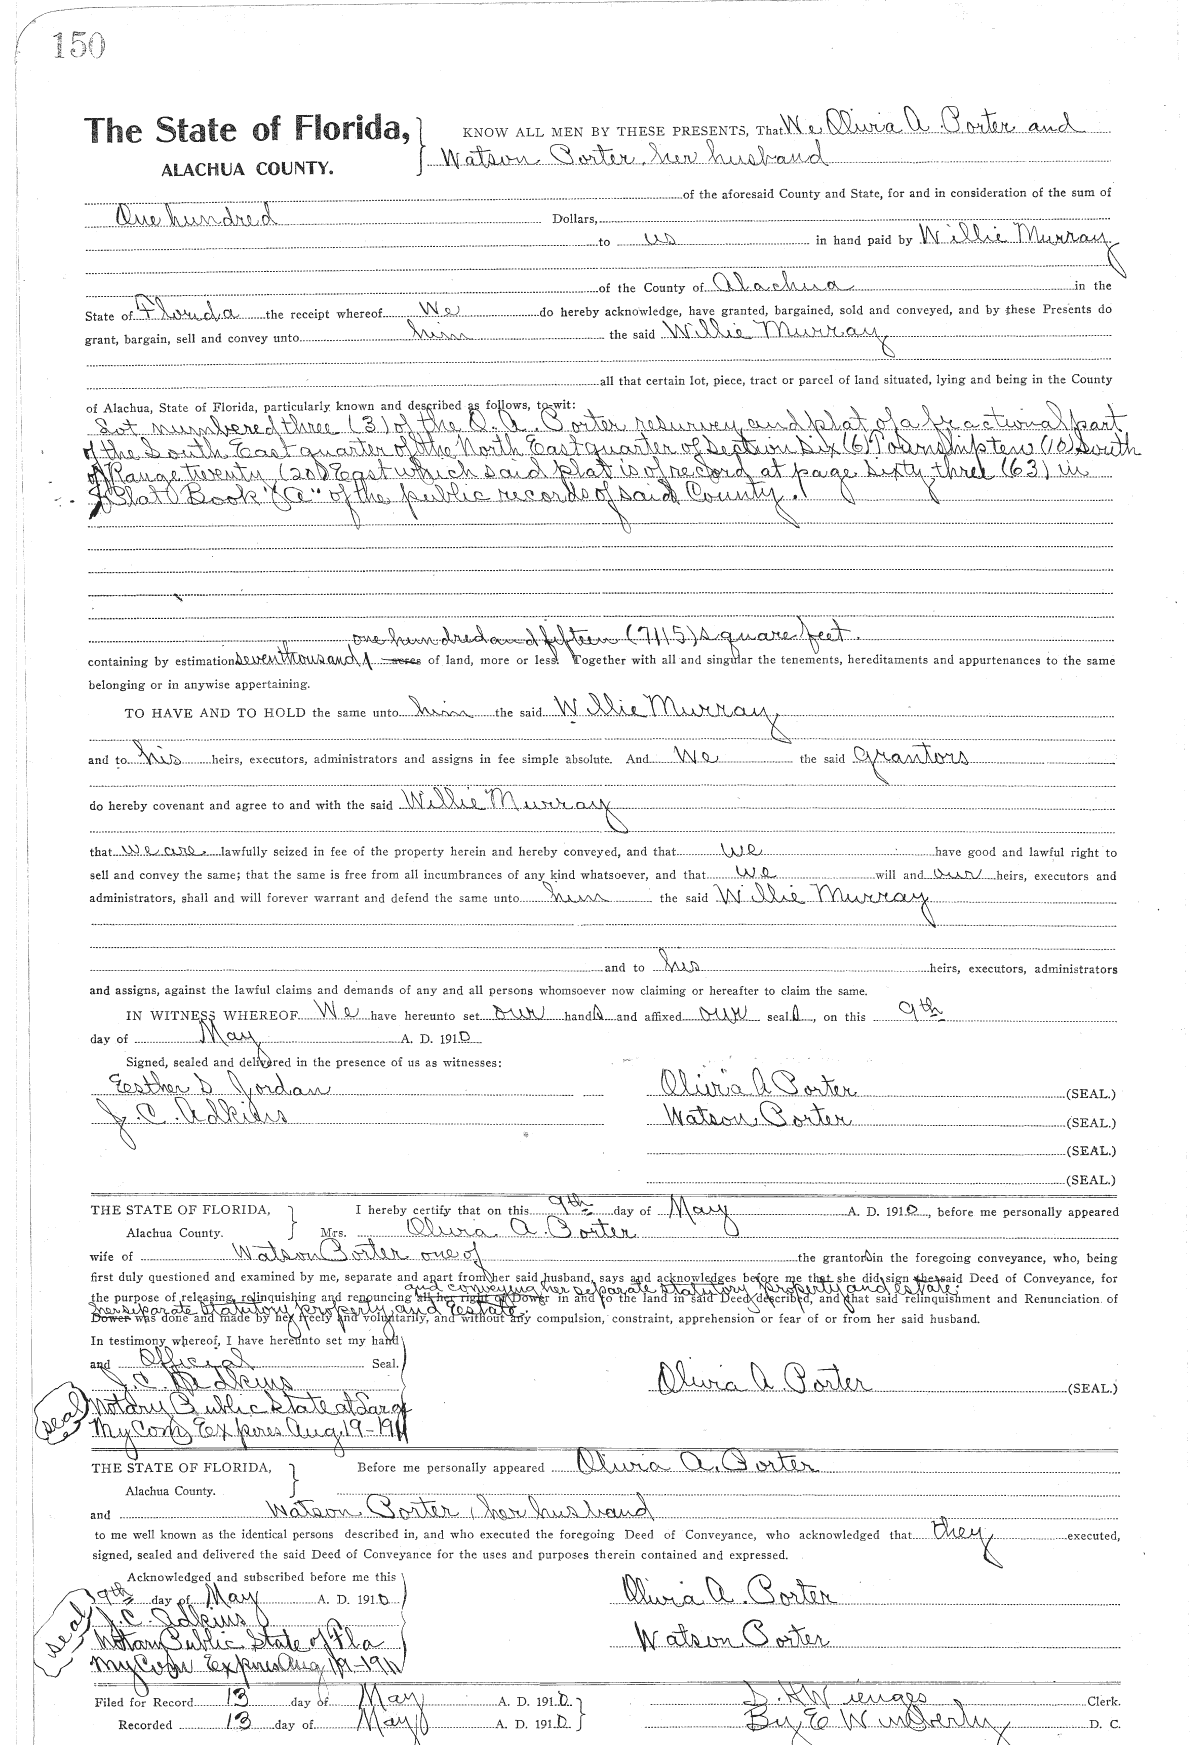 150
The State of Florida, KNOW ALL MEN BY THESE PRESENTS, That We Olivia A. Porter and
ALACHUA COUNTY. Watson Porter, her husband
of the aforesaid County and State, for and in consideration of the sum of
One hundred Dollars,
to us in hand paid by Willie Murray
of the County of Alachua in the
State of Florida the receipt whereof We do hereby acknowledge, have granted, bargained, sold and conveyed, and by these Presents do
grant, bargain, sell and convey unto him the said Willie Murray
all that certain lot, piece, tract or parcel of land situated, lying and being in the County
of Alachua, State of Florida, particularly known and described as follows, to-wit:
Lot numbered three (3) of the O. A. Porter resurvey and plat of a fractional part
of the South East quarter of the North East quarter of Section Six (6) Township ten (10) South
of Range twenty (20) East which said plat is of record at page sixty three (63) in
Plat Book "A" of the public records of said County.
one hundred and fifteen (7115) square feet.
containing by estimation seven thousand acres of land, more or less. Together with all and singular the tenements, hereditaments and appurtenances to the same
belonging or in anywise appertaining.
TO HAVE AND TO HOLD the same unto him the said Willie Murray
and to his heirs, executors, administrators and assigns in fee simple absolute. And We the said grantors
do hereby covenant and agree to and with the said Willie Murray
that we are lawfully seized in fee of the property herein and hereby conveyed, and that we have good and lawful right to
sell and convey the same; that the same is free from all incumbrances of any kind whatsoever, and that we will and our heirs, executors and
administrators, shall and will forever warrant and defend the same unto him the said Willie Murray
and to his heirs, executors, administrators
and assigns, against the lawful claims and demands of any and all persons whomsoever now claiming or hereafter to claim the same.
IN WITNESS WHEREOF We have hereunto set our hands and affixed our seals, on this 9th
day of May A. D. 1910
Signed, sealed and delivered in the presence of us as witnesses:
Esther S. Jordan Olivia A Porter (SEAL.)
J. C. Adkins Watson Porter (SEAL.)
(SEAL.)
(SEAL.)
THE STATE OF FLORIDA, I hereby certify that on this 9th day of May A. D. 1910, before me personally appeared
Alachua County. Mrs. Olivia A. Porter
wife of Watson Porter one of the grantors in the foregoing conveyance, who, being
first duly questioned and examined by me, separate and apart from her said husband, says and acknowledges before me that she did sign the said Deed of Conveyance, for
and conveying her separate statutory property and estate.
the purpose of releasing, relinquishing and renouncing all her right of Dower in and to the land in said Deed described, and that said relinquishment and Renunciation of
her separate statutory property and Estate.
Dower was done and made by her freely and voluntarily, and without any compulsion, constraint, apprehension or fear of or from her said husband.
In testimony whereof, I have hereunto set my hand
and Official Seal.
J. C. Adkins Olivia A Porter (SEAL.)
seal Notary Public State at Large
My Com Expires Aug. 19-1911
THE STATE OF FLORIDA, Before me personally appeared Olivia A. Porter
Alachua County.
and Watson Porter, her husband
to me well known as the identical persons described in, and who executed the foregoing Deed of Conveyance, who acknowledged that they executed,
signed, sealed and delivered the said Deed of Conveyance for the uses and purposes therein contained and expressed.
Acknowledged and subscribed before me this
9th day of May A. D. 1910 Olivia A. Porter
J. C. Adkins
seal Notary Public State of Fla Watson Porter
My Com Expires Aug 19-1911
Filed for Record 13 day of May A. D. 1910 S. H. Wienges Clerk.
Recorded 13 day of May A. D. 1910 By E Wimberly D. C.